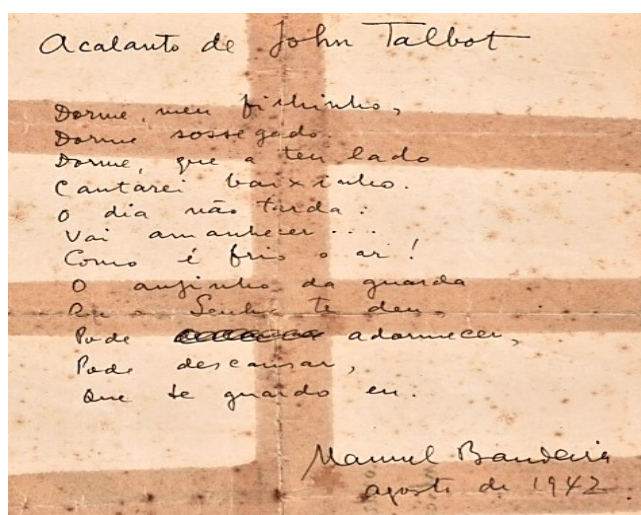 Acalanto de John Talbot
Dorme, meu filhinho,
Dorme sossegado.
Dorme, que a teu lado
Cantarei baixinho.
O dia não tarda:
Vai amanhecer...
Como é frio o ar!
O anjinho da guarda
Que o Senhor te deu,
Pode adormecer,
Pode descansar,
Que te guardo eu.
Manuel Bandeira
agosto de 1942